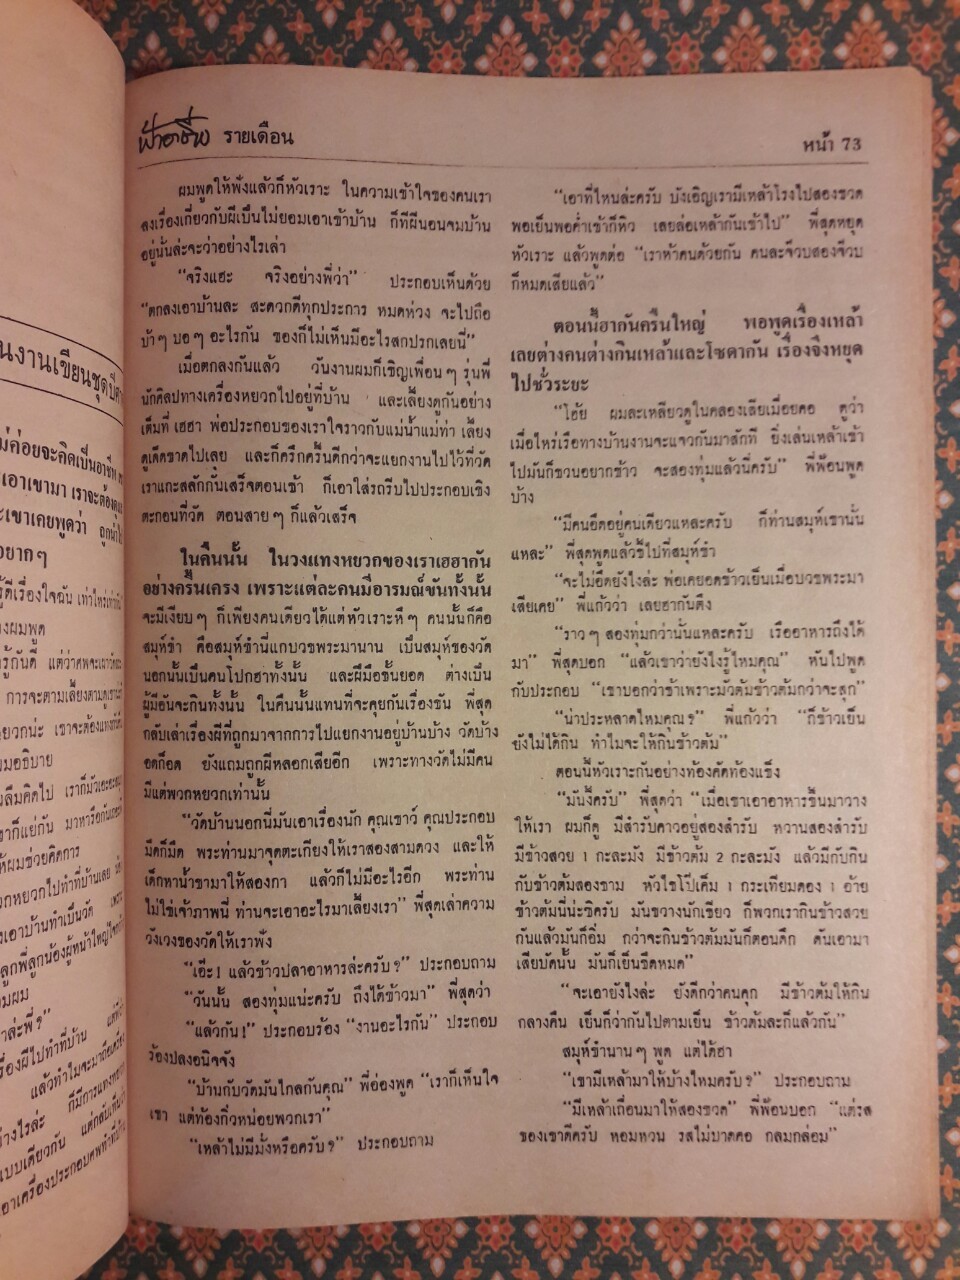 ฟ้าอาชีพ รายเดือน
หน้า 73
ผมพูดให้ฟังแล้วก็หัวเราะ ในความเข้าใจของคนเรา
ลงเรื่องเกี่ยวกับผีเป็นไม่ยอมเอาเข้าบ้าน ก็ทีผีนอนจมบ้าน
อยู่นั้นล่ะจะว่าอย่างไรเล่า
“จริงแฮะ จริงอย่างพี่ว่า” ประกอบเห็นด้วย
“ตกลงเอาบ้านละ สะดวกดีทุกประการ หมดห่วง จะไปถือ
บ้าๆ บอๆ อะไรกัน ของก็ไม่เห็นมีอะไรสกปรกเลยนี่”
เมื่อตกลงกันแล้ว วันงานผมก็เชิญเพื่อนๆ รุ่นพี่
นักศิลปทางเครื่องหยวกไปอยู่ที่บ้าน และเลี้ยงดูกันอย่าง
เต็มที่ เฮฮา พ่อประกอบของเราใจราวกับแม่น้ำแม่ท่า เลี้ยง
ดูเด็ดขาดไปเลย และก็ครึกครื้นดีกว่าจะแยกงานไปไว้ที่วัด
เราแกะสลักกันเสร็จตอนเช้า ก็เอาใส่รถรีบไปประกอบเชิง
ตะกอนที่วัด ตอนสายๆ ก็แล้วเสร็จ
ในคืนนั้น ในวงแทงหยวกของเราเฮฮากัน
อย่างครื้นเครง เพราะแต่ละคนมีอารมณ์ขันทั้งนั้น
จะมีเงียบๆ ก็เพียงคนเดียวได้แต่หัวเราะหึๆ คนนั้นก็คือ
สมุห์ชำ คือสมุห์ชำนี่แกบวชพระมานาน เป็นสมุห์ของวัด
นอกนั้นเป็นคนโปกฮาทั้งนั้น และฝีมือชั้นยอด ต่างเป็น
ผู้มีอันจะกินทั้งนั้น ในคืนนั้นแทนที่จะคุยกันเรื่องขัน พี่สุด
กลับเล่าเรื่องผีที่ถูกมาจากการไปแยกงานอยู่บ้านบ้าง วัดบ้าง
อดก็อด ยังแถมถูกผีหลอกเสียอีก เพราะทางวัดไม่มีคน
มีแต่พวกหยวกเท่านั้น
“วัดบ้านนอกนี่มันเอาเรื่องนัก คุณเชาว์ คุณประกอบ
มืดก็มืด พระท่านมาจุดตะเกียงให้เราสองสามดวง และให้
เด็กหาน้ำชามาให้สองกา แล้วก็ไม่มีอะไรอีก พระท่าน
ไม่ใช่เจ้าภาพนี่ ท่านจะเอาอะไรมาเลี้ยงเรา” พี่สุดเล่าความ
วังเวงของวัดให้เราฟัง
“เอ๊ะ! แล้วข้าวปลาอาหารล่ะครับ?” ประกอบถาม
“วันนั้น สองทุ่มแน่ะครับ ถึงได้ข้าวมา” พี่สุดว่า
“แล้วกัน!” ประกอบร้อง “งานอะไรกัน” ประกอบ
ร้องปลงอนิจจัง
“บ้านกับวัดมันไกลกันคุณ” พี่อ่องพูด “เราก็เห็นใจ
เขา แต่ท้องกิ่วหน่อยพวกเรา”
“เหล้าไม่มีมั่งหรือครับ?” ประกอบถาม
“เอาที่ไหนล่ะครับ บังเอิญเรามีเหล้าโรงไปสองขวด
พอเย็นพอค่ำเข้าก็หิว เลยล่อเหล้ากันเข้าไป” พี่สุดหยุด
หัวเราะ แล้วพูดต่อ “เราห้าคนด้วยกัน คนละจิ๊บสองจิ๊บ
ก็หมดเสียแล้ว”
ตอนนี้ฮากันครืนใหญ่ พอพูดเรื่องเหล้า
เลยต่างคนต่างกินเหล้าและโซดากัน เรื่องจึงหยุด
ไปชั่วระยะ
“โฮ้ย ผมละเหลียวดูในคลองเสียเมื่อยคอ ดูว่า
เมื่อไหร่เรือทางบ้านงานจะแจวกันมาสักที ยิ่งเล่นเหล้าเข้า
ไปมันก็ชวนอยากข้าว จะสองทุ่มแล้วนี่ครับ” พี่พ้อนพูด
บ้าง
“มีคนอึดอยู่คนเดียวแหละครับ ก็ท่านสมุห์เรานั้น
แหละ” พี่สุดพูดแล้วชี้ไปที่สมุห์ชำ
“จะไม่อึดยังไงล่ะ พ่อเคยอดข้าวเย็นเมื่อบวชพระมา
เสียเคย” พี่แก้วว่า เลยฮากันตึง
“ราวๆ สองทุ่มกว่านั้นแหละครับ เรืออาหารถึงได้
มา” พี่สุดบอก “แล้วเขาว่ายังไงรู้ไหมคุณ” หันไปพูด
กับประกอบ “เขาบอกว่าช้าเพราะมัวต้มข้าวต้มกว่าจะสุก”
“น่าประหลาดไหมคุณ?” พี่แก้วว่า “ก็ข้าวเย็น
ยังไม่ได้กิน ทำไมจะให้กินข้าวต้ม”
ตอนนี้หัวเราะกันอย่างท้องคัดท้องแข็ง
“มันงี้ครับ” พี่สุดว่า “เมื่อเขาเอาอาหารขึ้นมาวาง
ให้เรา ผมก็ดู มีสำรับคาวอยู่สองสำรับ หวานสองสำรับ
มีข้าวสวย 1 กะละมัง มีข้าวต้ม 2 กะละมัง แล้วมีกับกิน
กับข้าวต้มสองชาม หัวไชโป๊เค็ม 1 กระเทียมดอง 1 อ้าย
ข้าวต้มนี่น่ะซิครับ มันขวางนักเชียว ก็พวกเรากินข้าวสวย
กันแล้วมันก็อิ่ม กว่าจะกินข้าวต้มมันก็ตอนดึก ดันเอามา
เสียบัดนั้น มันก็เย็นชืดหมด”
“จะเอายังไงล่ะ ยังดีกว่าคนคุก มีข้าวต้มให้กิน
กลางคืน เย็นก็ว่ากันไปตามเย็น ข้าวต้มละก็แล้วกัน”
สมุห์ชำนานๆ พูด แต่ได้ฮา
“เขามีเหล้ามาให้บ้างไหมครับ?” ประกอบถาม
“มีเหล้าเถื่อนมาให้สองขวด” พี่พ้อนบอก “แต่รส
ของเขาดีครับ หอมหวน รสไม่บาดคอ กลมกล่อม”